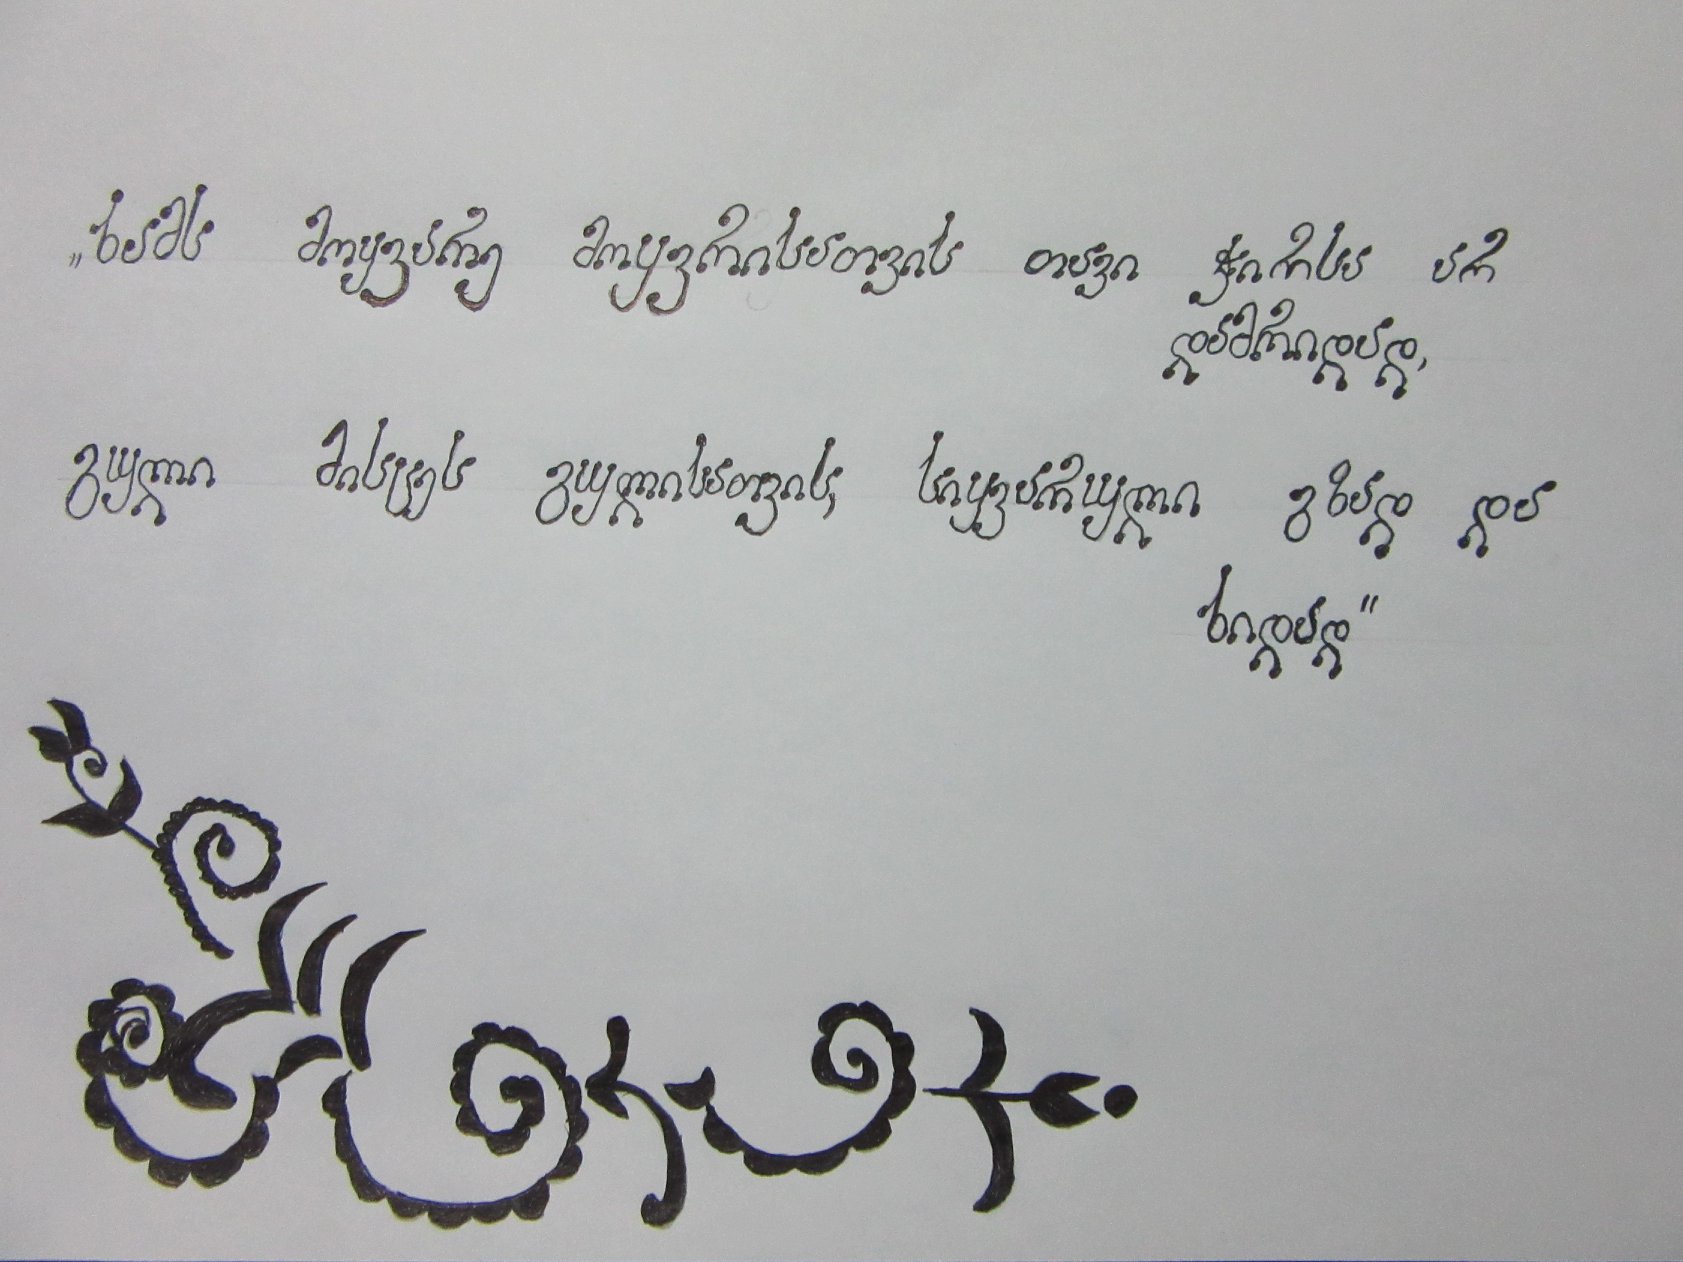 „ხამს მოყვარე მოყვრისათვის თავი ჭირსა არ
დამრიდად,
გული მისცეს გულისათვის, სიყვარული გზად და
ხიდად“